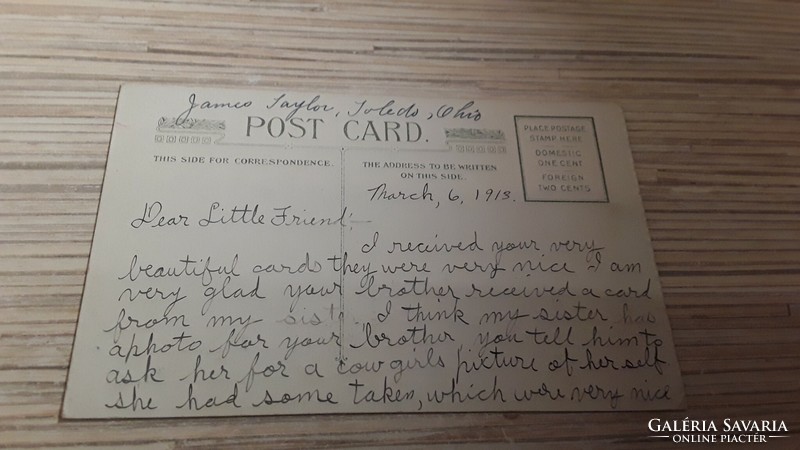 James Taylor, Toledo, Ohio
POST CARD.
PLACE POSTAGE
STAMP HERE
DOMESTIC
ONE CENT
FOREIGN
TWO CENTS
THIS SIDE FOR CORRESPONDENCE.
THE ADDRESS TO BE WRITTEN
ON THIS SIDE.
March, 6, 1913.
Dear Little Friend:-
I received your very
beautiful cards they were very nice - I am
very glad your brother received a card
from my sist . I think my sister has
a photo for your brother, you tell him to
ask her for a cow girls picture of her self
she had some taken, which were very nice
GALÉRIA SAVARIA
ONLINE PIACTÉR